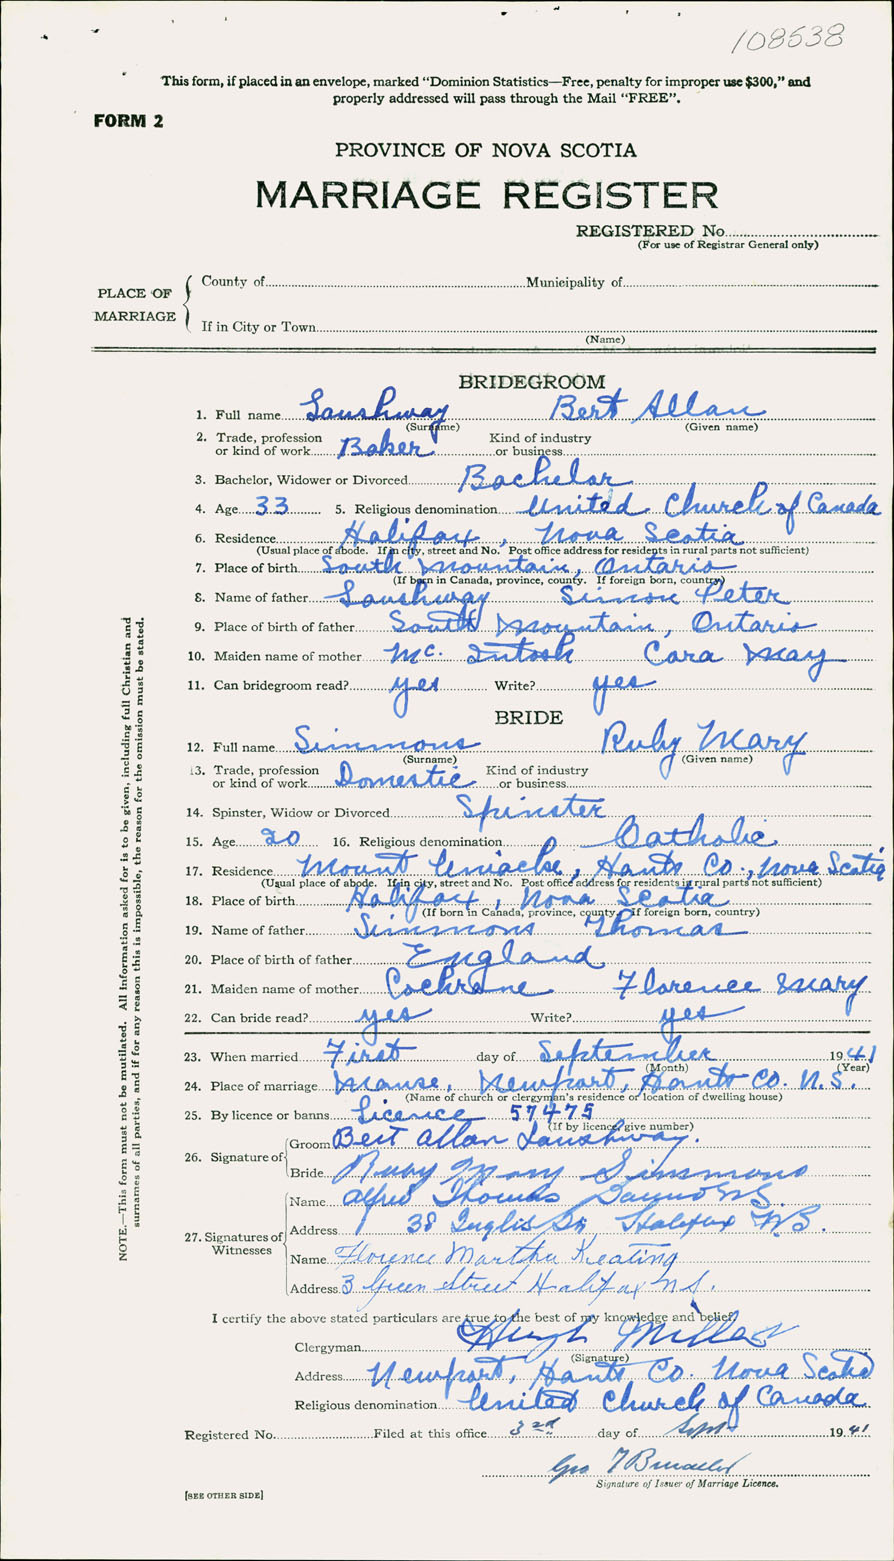 108538
This form, if placed in an envelope, marked “Dominion Statistics—Free, penalty for improper use $300,” and
properly addressed will pass through the Mail “FREE”.
FORM 2
PROVINCE OF NOVA SCOTIA
MARRIAGE REGISTER
REGISTERED No.
(For use of Registrar General only)
PLACE OF MARRIAGE
County of Municipality of
If in City or Town
(Name)
NOTE.—This form must not be mutilated. All Information asked for is to be given, including full Christian and
surnames of all parties, and if for any reason this is impossible, the reason for the omission must be stated.
BRIDEGROOM
1. Full name Laushway Bert Allan
(Surname) (Given name)
2. Trade, profession or kind of work Baker Kind of industry or business
3. Bachelor, Widower or Divorced Bachelor
4. Age 33 5. Religious denomination United Church of Canada
6. Residence Halifax, Nova Scotia
(Usual place of abode. If in city, street and No. Post office address for residents in rural parts not sufficient)
7. Place of birth South Mountain, Ontario
(If born in Canada, province, county. If foreign born, country)
8. Name of father Laushway Simon Peter
9. Place of birth of father South Mountain, Ontario
10. Maiden name of mother Mc. Intosh Cara May
11. Can bridegroom read? yes Write? yes
BRIDE
12. Full name Simmons Ruby Mary
(Surname) (Given name)
13. Trade, profession or kind of work Domestic Kind of industry or business
14. Spinster, Widow or Divorced Spinster
15. Age 20 16. Religious denomination Catholic
17. Residence Mount Uniacke, Hants Co., Nova Scotia
(Usual place of abode. If in city, street and No. Post office address for residents in rural parts not sufficient)
18. Place of birth Halifax, Nova Scotia
(If born in Canada, province, county. If foreign born, country)
19. Name of father Simmons Thomas
20. Place of birth of father England
21. Maiden name of mother Cochrane Florence Mary
22. Can bride read? yes Write? yes
23. When married First day of September 1941
(Month) (Year)
24. Place of marriage Manse, Newport, Hants Co. N.S.
(Name of church or clergyman's residence or location of dwelling house)
25. By licence or banns Licence 57475
(If by licence, give number)
26. Signature of
Groom Bert Allan Laushway.
Bride Ruby Mary Simmons
27. Signatures of Witnesses
Name Alfred Thomas
Address 38 Inglis St Halifax N.S.
Name Florence Martha Keating
Address 3 Green Street Halifax N.S.
I certify the above stated particulars are true to the best of my knowledge and belief.
Clergyman Hugh Miller
(Signature)
Address Newport, Hants Co. Nova Scotia
Religious denomination United Church of Canada
Registered No. Filed at this office 3rd day of Sept 1941
Geo
Signature of Issuer of Marriage Licence.
[SEE OTHER SIDE]